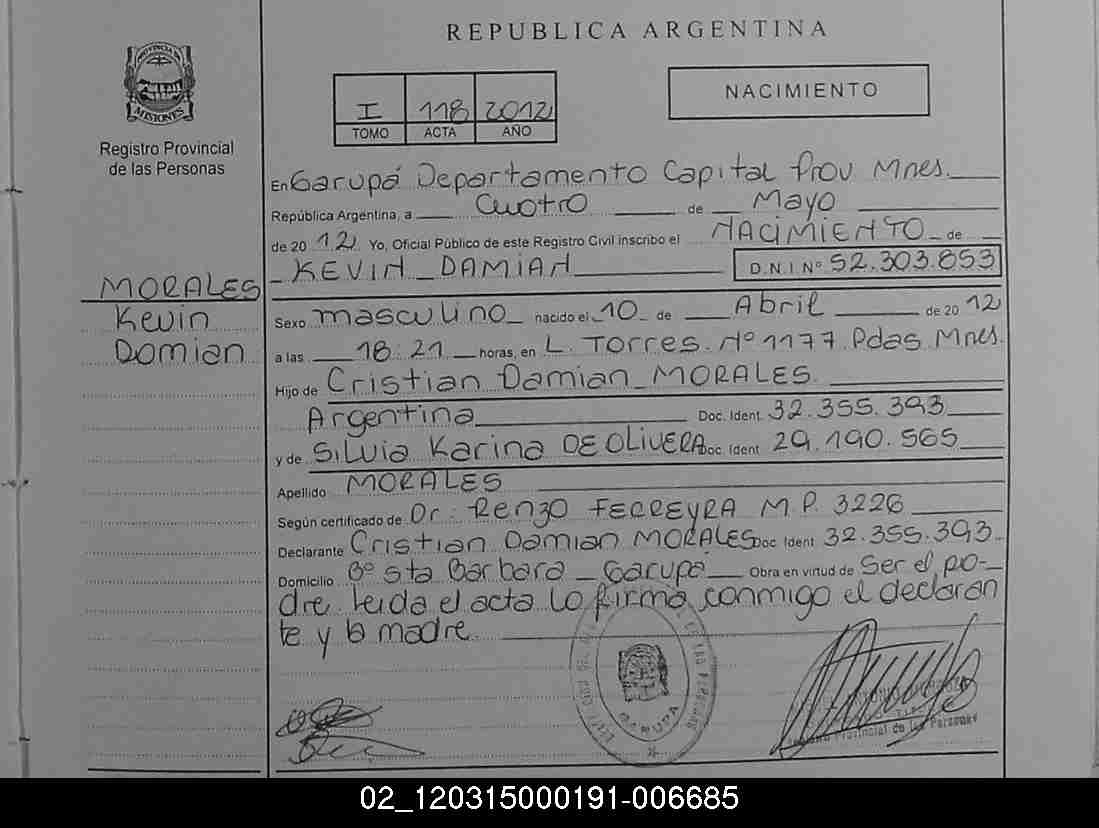 REPUBLICA ARGENTINA
PROVINCIA DE
MISIONES
Registro Provincial
de las Personas
I 118 2012
TOMO ACTA AÑO
NACIMIENTO
En Garupá Departamento Capital Prov Mnes.
República Argentina, a Cuatro de Mayo
de 2012 Yo, Oficial Público de este Registro Civil inscribo el NACIMIENTO de
KEVIN DAMIAN D.N.I Nº 52.303.853
MORALES
Kevin
Damian
Sexo masculino nacido el 10 de Abril de 2012
a las 18:21 horas, en L. Torres. Nº 1177 Pdas Mnes.
Hijo de Cristian Damian MORALES.
Argentina Doc. Ident. 32.355.393
y de Silvia Karina DE OLIVERA Doc. Ident 29.190.565
Apellido MORALES
Según certificado de Dr: Renzo FERREYRA M.P. 3226
Declarante Cristian Damian MORALES Doc. Ident 32.355.393
Domicilio Bº Sta Barbara _ Garupá Obra en virtud de Ser el pa-
dre. Leida el acta lo firma conmigo el declaran
te y la madre.
GARUPA
Provincial de las Personas
02_120315000191-006685